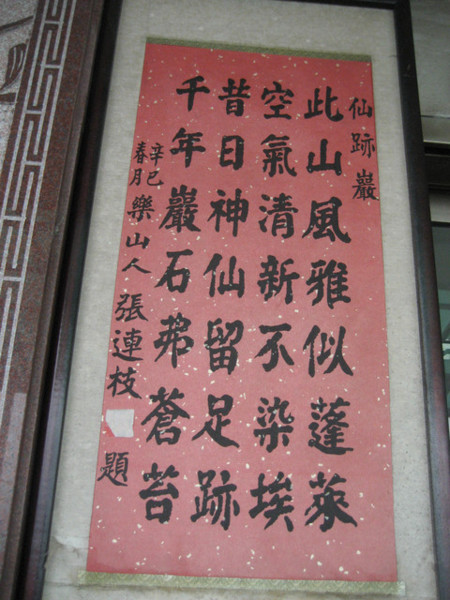 仙跡巖
此山風雅似蓬萊
空氣清新不染埃
昔日神仙留足跡
千年巖石弗蒼苔
辛巳春月 樂山人 張連枝 題